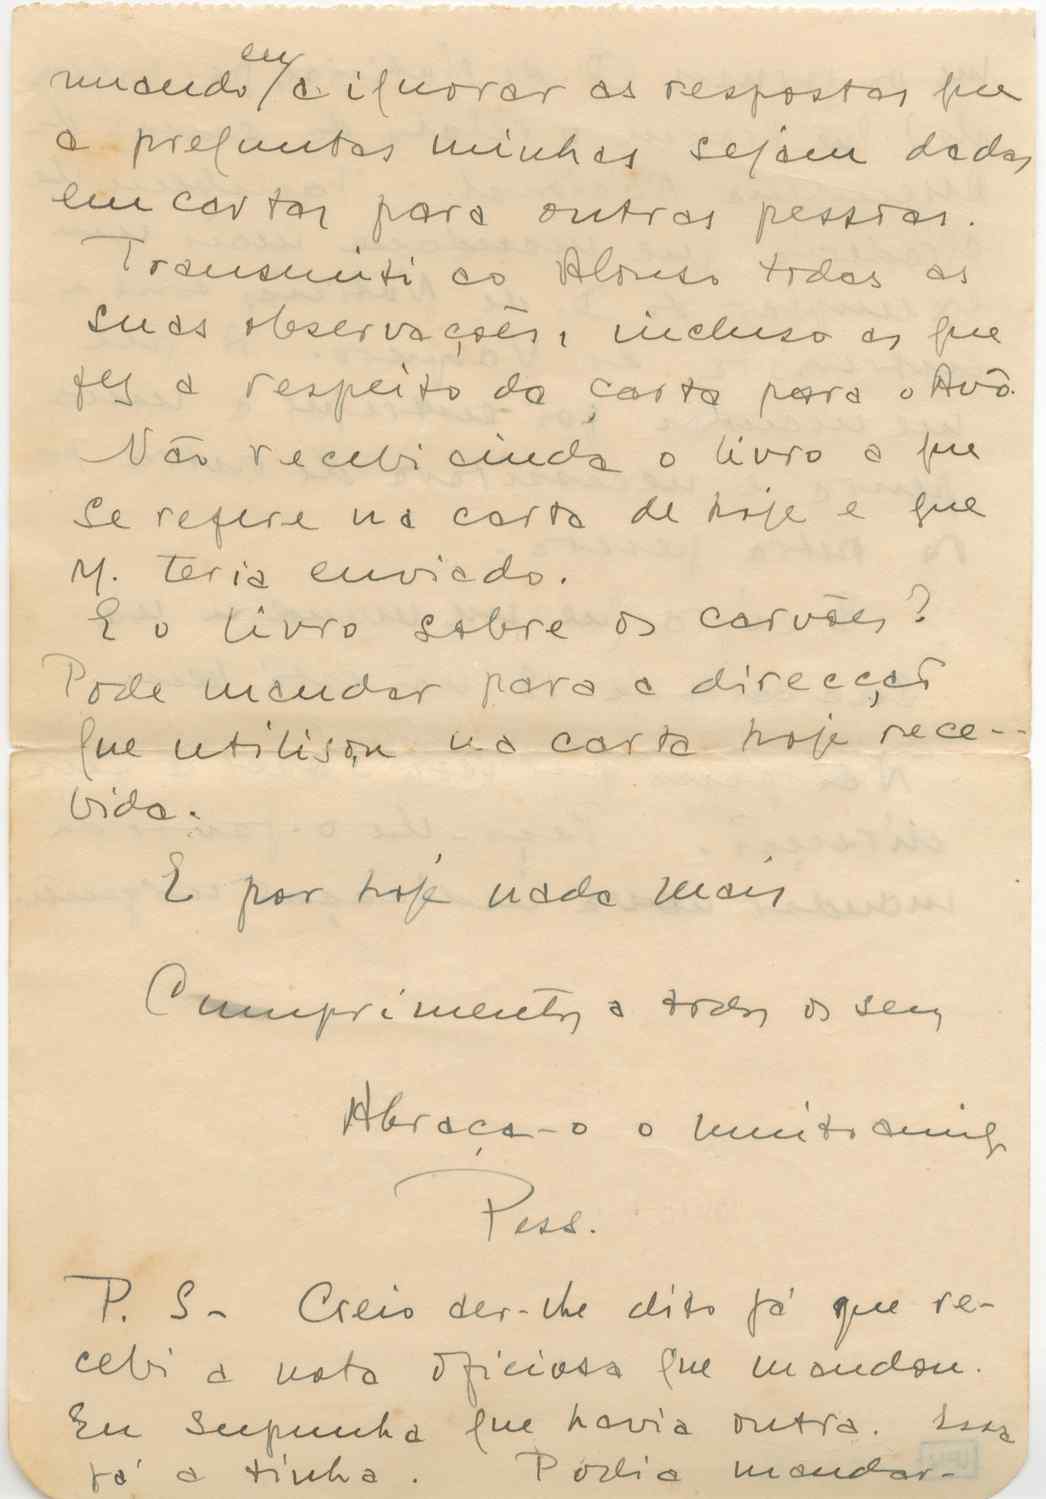 nuando eu/a ignorar as respostas que
a preguntas minhas sejam dadas
em cartas para outras pessoas.
Transmiti ao Alonso todas as
suas observações, incluso as que
fez a respeito da carta para o Avô.
Não recebi ainda o livro a que
se refere na carta de hoje e que
M. teria enviado.
E o livro sobre os carvões?
Pode mandar para a direcção
que utilisou na carta hoje rece-
bida.
E por hoje nada mais
Cumprimentos a todos os seus
Abraça-o o muito amigo
Pess.
P. S- Creio ter-lhe dito já que re-
cebi a nota oficiosa que mandou.
Eu supunha que havia outra. Essa
já a tinha. Podia mandar-